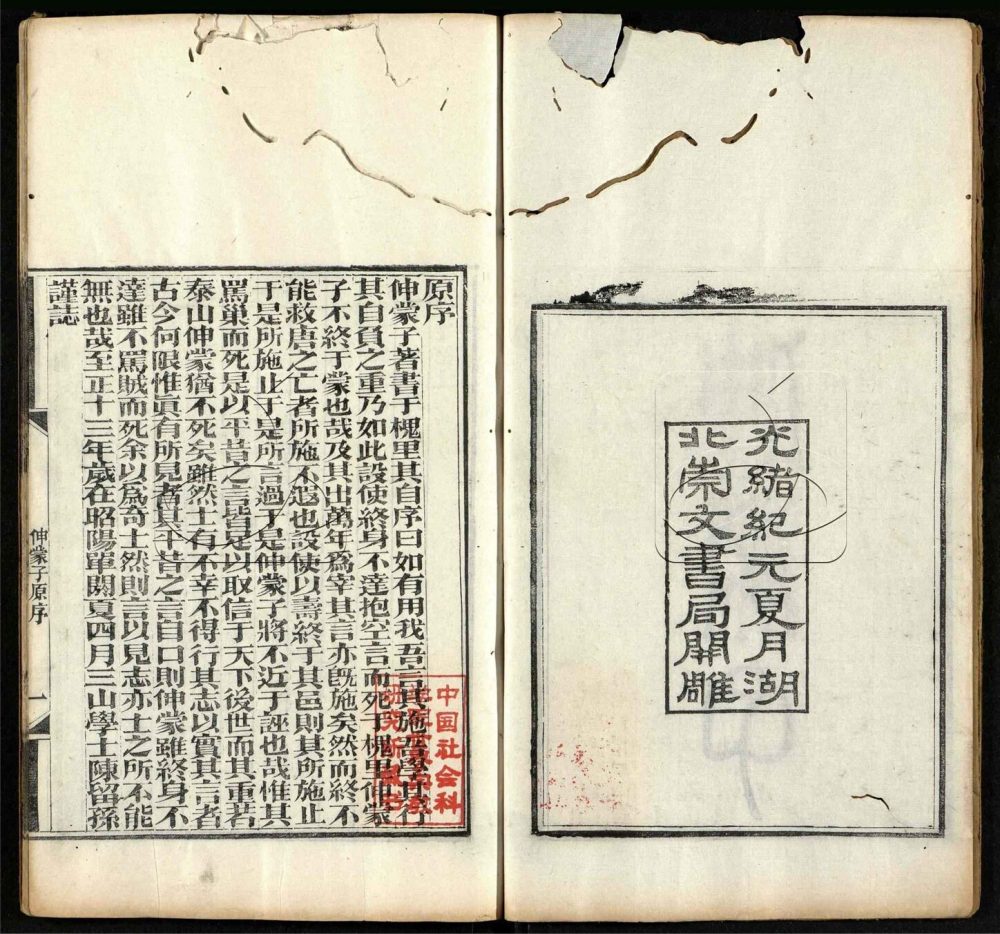 光緒紀元夏月湖
北崇文書局開雕
原序
伸蒙子著書于槐里其自序曰如有用我吾言其施吾學其行
其自負之重乃如此設使終身不達抱空言而死于槐里伸蒙
子不終于蒙也哉及其出萬年爲宰其言亦旣施矣然而終不
能救唐之亡者所施不遐也設使以壽終于其邑則其所施止
于是所施止于是所言過于是伸蒙子將不近于誣也哉惟其
罵巢而死是以平昔之言皆足以取信于天下後世而其重若
泰山伸蒙猶不死矣雖然士有不幸不得行其志以實其言者
古今何限惟眞有所見者其平昔之言自口則伸蒙雖終身不
達雖不罵賊而死余以爲奇士然則言以見志亦士之所不能
無也哉至正十三年歲在昭陽單閼夏四月三山學士陳留孫
謹誌
伸蒙子原序
一
中国社会科